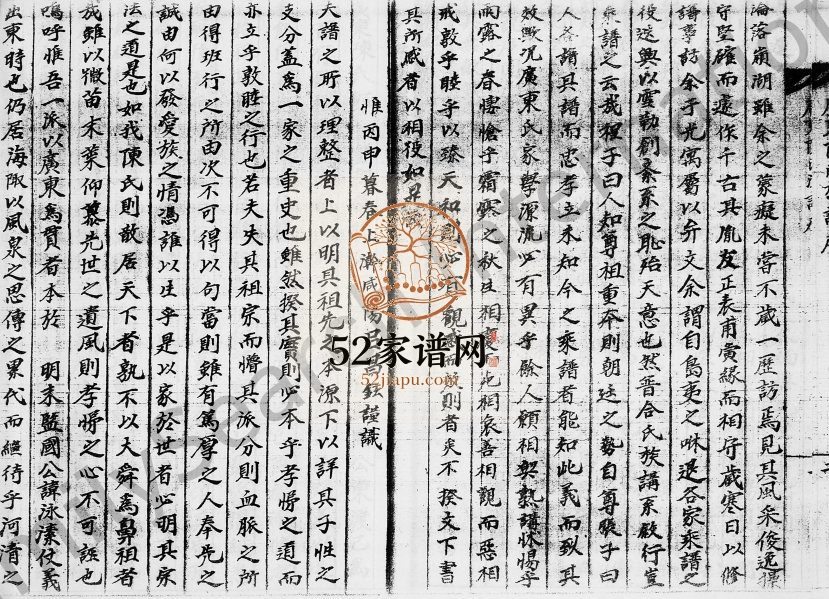 淪落嶺湖雖余之蒙癡未嘗不歲一歷訪焉見其風采俊逸操
守堅確而遠作千古其胤友正表甫寅緣而相守歲寒日以修
譜事訪余于光寓屬以弁文余謂自島夷之噈退各家乘譜之
後迭興以靈勒創系之恥殆天意也然晉合氏族講系敍行豈
乘譜之云哉程子曰人知尊祖重本則朝廷之勢自尊張子曰
人各譜其譜而忠孝立未知今之乘譜者能知此義而致其
效歟况廣東氏家學源流必有異乎餘人願相與孰講怵惕乎
雨露之春悽愴乎霜露之秋生相慶而死相哀善相觀而惡相
戒敦乎睦乎以臻天和則必有觀者矣不揆文下書
其所感者以相役如是
惟丙申暮春上澣咸陽呂謹識
夫譜之所以理整者上以明其祖先之本源下以詳其子姓之
支分蓋為一家之重史也雖然揆其實則必本乎孝悌之道而
亦立乎敦睦之行也若夫失其祖宗而懵其派分則血脈之所
由得班行之所由次不可得以句當則雖有篤厚之人奉先之
誠由何以發愛族之情馮誰以生乎是以家於世者必明其宗
法之道是也如我陳氏則散居天下者孰不以大舜為鼻祖者
哉雖以微苗末葉仰慕先世之遺風則孝悌之心不可誣也
嗚呼惟吾一派以廣東為貫者本於 明末監國公諱泳溱仗義
出東時也仍居海陬以風泉之思傳之累代而繼待乎河清之
52家谱网
52jiapu.com